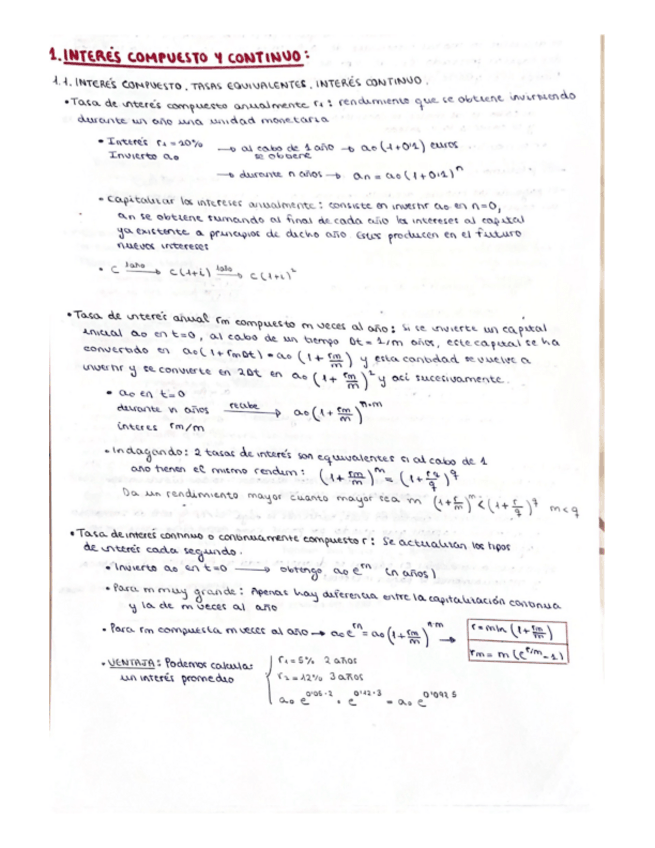 1. INTERÉS COMPUESTO Y CONTINUO:
1.1. INTERÉS COMPUESTO, TASAS EQUIVALENTES, INTERÉS CONTINUO.
• Tasa de interés compuesto anualmente r₁: rendimiento que se obtiene invirtiendo
durante un año una unidad monetaria
• Interés r₁ = 10% → al cabo de 1 año → a₀(1+0'1) euros
Invierto a₀ se obtiene
→ durante n años → an = a₀(1+0'1)ⁿ
• Capitalizar los intereses anualmente: consiste en invertir a₀ en n=0,
an se obtiene sumando al final de cada año los intereses al capital
ya existente a principios de dicho año. Estos producen en el futuro
nuevos intereses
• C —1 año→ C(1+i) —1 año→ C(1+i)²
• Tasa de interés anual rm compuesto m veces al año: si se invierte un capital
inicial a₀ en t=0, al cabo de un tiempo Δt = 1/m años, este capital se ha
convertido en a₀(1+rmΔt) = a₀(1+rm/m) y esta cantidad se vuelve a
invertir y se convierte en 2Δt en a₀(1+rm/m)² y así sucesivamente.
• a₀ en t=0
durante n años —recibe→ a₀(1+rm/m)ⁿ·ᵐ
interes rm/m
• Indagando: 2 tasas de interés son equivalentes si al cabo de 1
año tienen el mismo rendim: (1+rm/m)^m = (1+rq/q)^q
Da un rendimiento mayor cuanto mayor sea m (1+r/m)^m < (1+r/q)^q m<q
• Tasa de interés continuo o continuamente compuesto r: Se actualizan los tipos
de interés cada segundo.
• Invierto a₀ en t=0 → obtengo a₀e^rn (n años)
• Para m muy grande: Apenas hay diferencia entre la capitalización continua
y la de m veces al año
• Para rm compuesta m veces al año → a₀e^rn = a₀(1+rm/m)^n·m → r = m ln(1+rm/m)
rm = m(e^r/m − 1)
• VENTAJA: Podemos calcular r₁ = 5% 2 años
un interés promedio r₂ = 12% 3 años
a₀e^0'05·2 · e^0'12·3 = a₀e^0'092 5